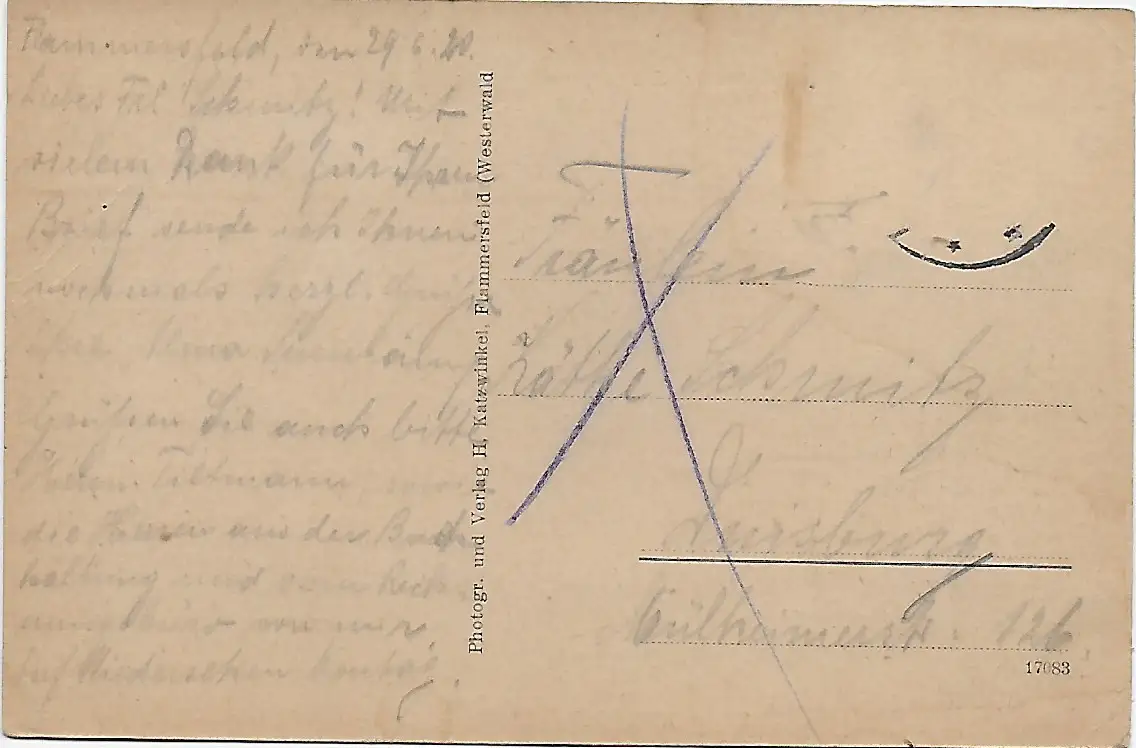 Flammersfeld, den 29.6.20.
Liebes Frl. Schmitz! Mit
vielem Dank für Ihren
Brief sende ich Ihnen
nochmals herzl.
Grüßen Sie auch bitte
die Herren aus der Buch-
haltung und vom Rech-
nungsbüro von mir.
Auf Wiedersehen
Photogr. und Verlag H. Katzwinkel, Flammersfeld (Westerwald
Fräulein
Käthe Schmitz
Duisburg
Mülheimerstr. 126
17083